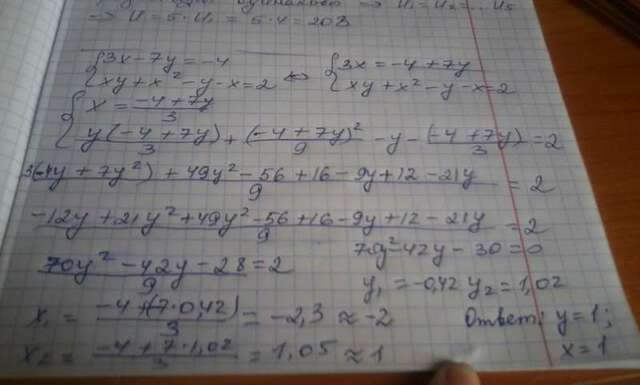 одинаково => U₁ = U₂ = ...
=> U = 5·U₁ = 5·4 = 20 В
{3x - 7y = -4 <=> {3x = -4 + 7y
{xy + x² - y - x = 2 {xy + x² - y - x = 2
{x = (-4 + 7y)/3
{y(-4 + 7y)/3 + (-4 + 7y)²/9 - y - (-4 + 7y)/3 = 2
(3(-4y + 7y²) + 49y² - 56 + 16 - 9y + 12 - 21y)/9 = 2
(-12y + 21y² + 49y² - 56 + 16 - 9y + 12 - 21y)/9 = 2
(70y² - 42y - 28)/9 = 2 70y² - 42y - 30 = 0
y₁ = -0,42 y₂ = 1,02
x₁ = (-4 + (7·0,42))/3 = -2,3 ≈ -2 Ответ: y = 1;
x₂ = (-4 + 7·1,02)/3 = 1,05 ≈ 1 x = 1